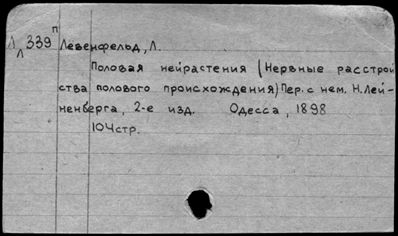 Л л 339 п Левенфельд, Л.
Половая нейрастения (Нервные расстрой
ства полового происхождения) Пер. с нем. Н. Лей-
ненберга, 2-е изд. Одесса, 1898
104стр.